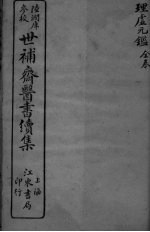 理虛元鑑
陸潤庠
參校
世補齋醫書續集
上海
江東書局
印行